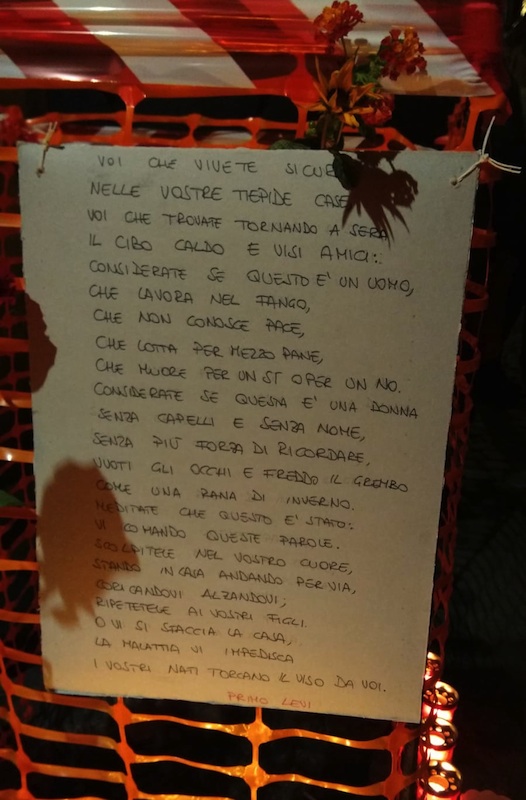 VOI CHE VIVETE SICUR
NELLE VOSTRE TIEPIDE CASE
VOI CHE TROVATE TORNANDO A SERA
IL CIBO CALDO E VISI AMICI:
CONSIDERATE SE QUESTO E' UN UOMO,
CHE LAVORA NEL FANGO,
CHE NON CONOSCE PACE,
CHE LOTTA PER MEZZO PANE,
CHE MUORE PER UN SI O PER UN NO.
CONSIDERATE SE QUESTA E' UNA DONNA
SENZA CAPELLI E SENZA NOME,
SENZA PIÙ FORZA DI RICORDARE,
VUOTI GLI OCCHI E FREDDO IL GREMBO
COME UNA RANA DI INVERNO.
MEDITATE CHE QUESTO E' STATO:
VI COMANDO QUESTE PAROLE.
SCOLPITELE NEL VOSTRO CUORE,
STANDO IN CASA ANDANDO PER VIA,
CORICANDOVI ALZANDOVI;
RIPETETELE AI VOSTRI FIGLI.
O VI SI SFACCIA LA CASA,
LA MALATTIA VI IMPEDISCA
I VOSTRI NATI TORCANO IL VISO DA VOI.
PRIMO LEVI